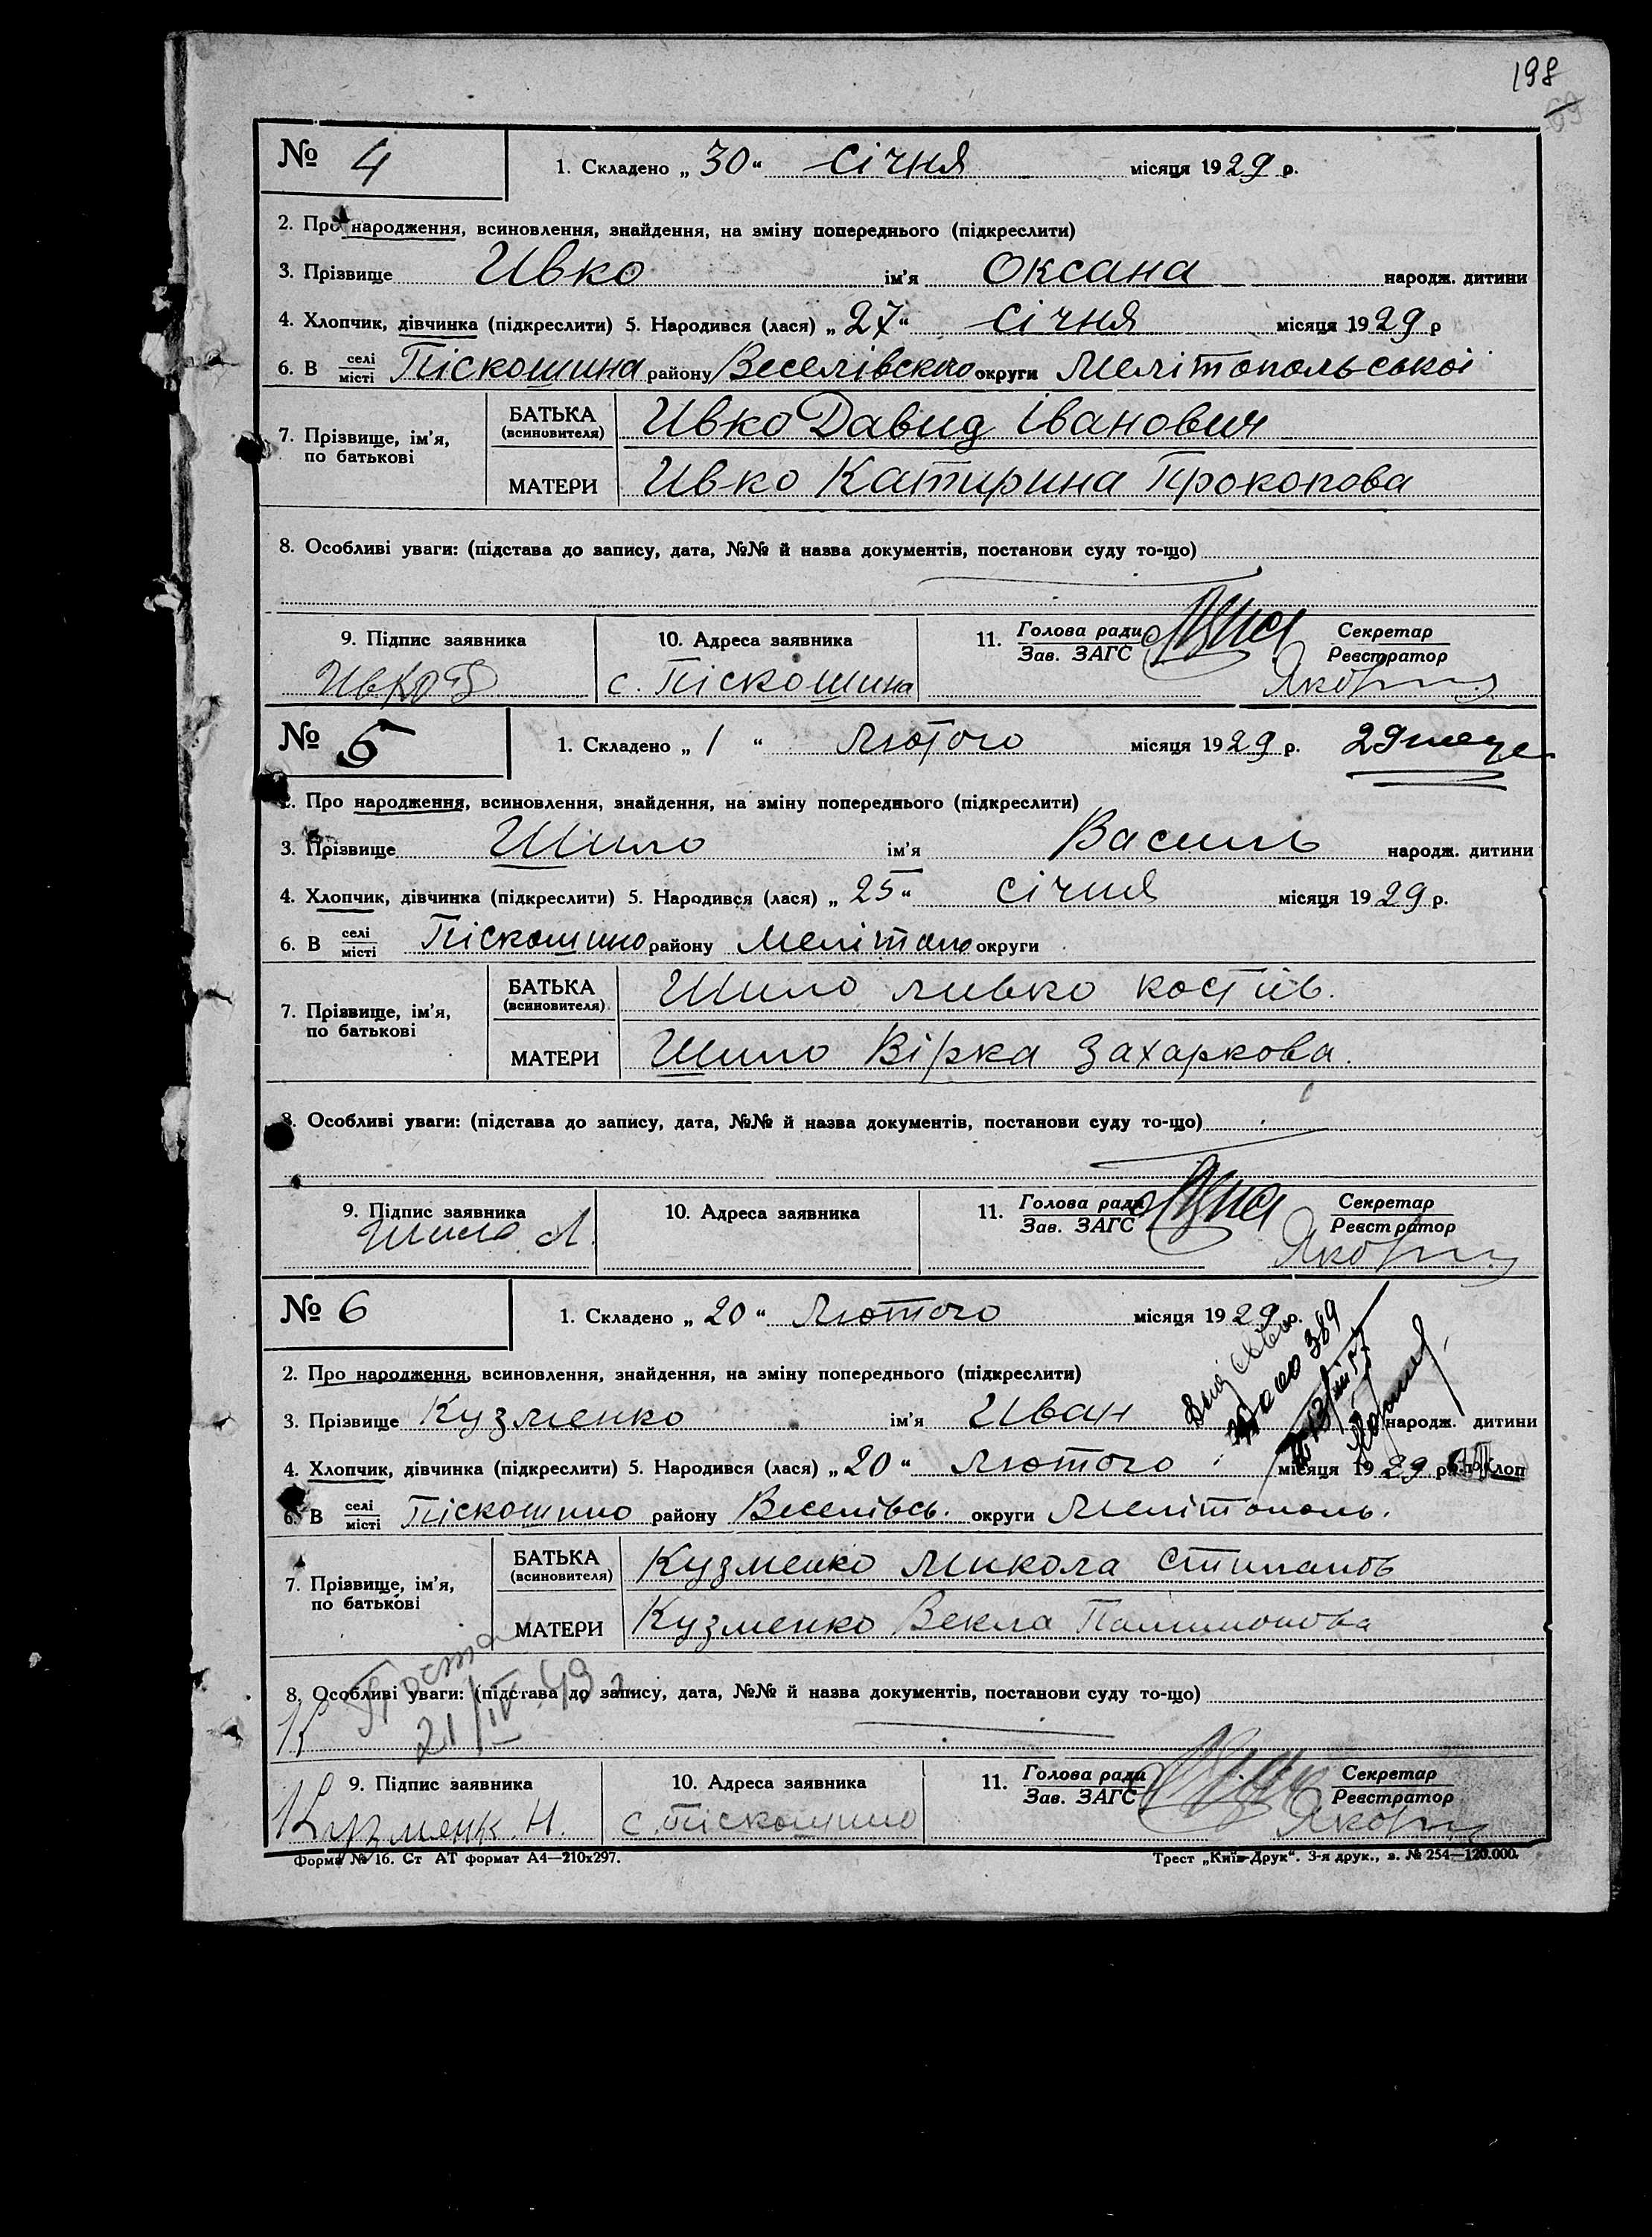 198
69
№ 4
1. Складено „30“ січня місяця 1929 р.
2. Про народження, всиновлення, знайдення, на зміну попереднього (підкреслити)
3. Прізвище Ивко ім'я Оксана народж. дитини
4. Хлопчик, дівчинка (підкреслити) 5. Народився (лася) „27“ січня місяця 1929 р
6. В селі/місті Піскошина району Веселівського округи Мелітопольської
7. Прізвище, ім'я, по батькові
БАТЬКА (всиновителя) Ивко Давид Іванович
МАТЕРИ Ивко Катирина Прокопова
8. Особливі уваги: (підстава до запису, дата, №№ й назва документів, постанови суду то-що)
9. Підпис заявника 10. Адреса заявника 11. Голова ради/Зав. ЗАГС Секретар/Реєстратор
Ивко Д с. Піскошина
№ 5
1. Складено „1“ Лютого місяця 1929 р.
2. Про народження, всиновлення, знайдення, на зміну попереднього (підкреслити)
3. Прізвище Шило ім'я Василь народж. дитини
4. Хлопчик, дівчинка (підкреслити) 5. Народився (лася) „25“ січня місяця 1929 р.
6. В селі/місті Піскошино району Мелітопо округи
7. Прізвище, ім'я, по батькові
БАТЬКА (всиновителя) Шило Ливко Костів.
МАТЕРИ Шило Вірка Захаркова.
8. Особливі уваги: (підстава до запису, дата, №№ й назва документів, постанови суду то-що)
9. Підпис заявника 10. Адреса заявника 11. Голова ради/Зав. ЗАГС Секретар/Реєстратор
Шило Л.
№ 6
1. Складено „20“ Лютого місяця 1929 р.
2. Про народження, всиновлення, знайдення, на зміну попереднього (підкреслити)
3. Прізвище Кузменко ім'я Иван народж. дитини
4. Хлопчик, дівчинка (підкреслити) 5. Народився (лася) „20“ Лютого місяця 1929 р.
6. В селі/місті Піскошино району Веселівсь. округи Мелітополь.
7. Прізвище, ім'я, по батькові
БАТЬКА (всиновителя) Кузменко Микола Стипанов
МАТЕРИ Кузменко Векла
21/IV 49
8. Особливі уваги: (підстава до запису, дата, №№ й назва документів, постанови суду то-що)
9. Підпис заявника 10. Адреса заявника 11. Голова ради/Зав. ЗАГС Секретар/Реєстратор
Кузменк. Н. с. Піскошино
Форма № 16. Ст АТ формат А4—210х297. Трест „Київ-Друк“. 3-я друк., з. № 254—120.000.